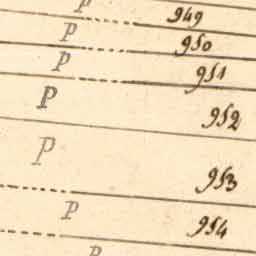 P 949
P 950
P 951
P 952
P 953
P 954
P